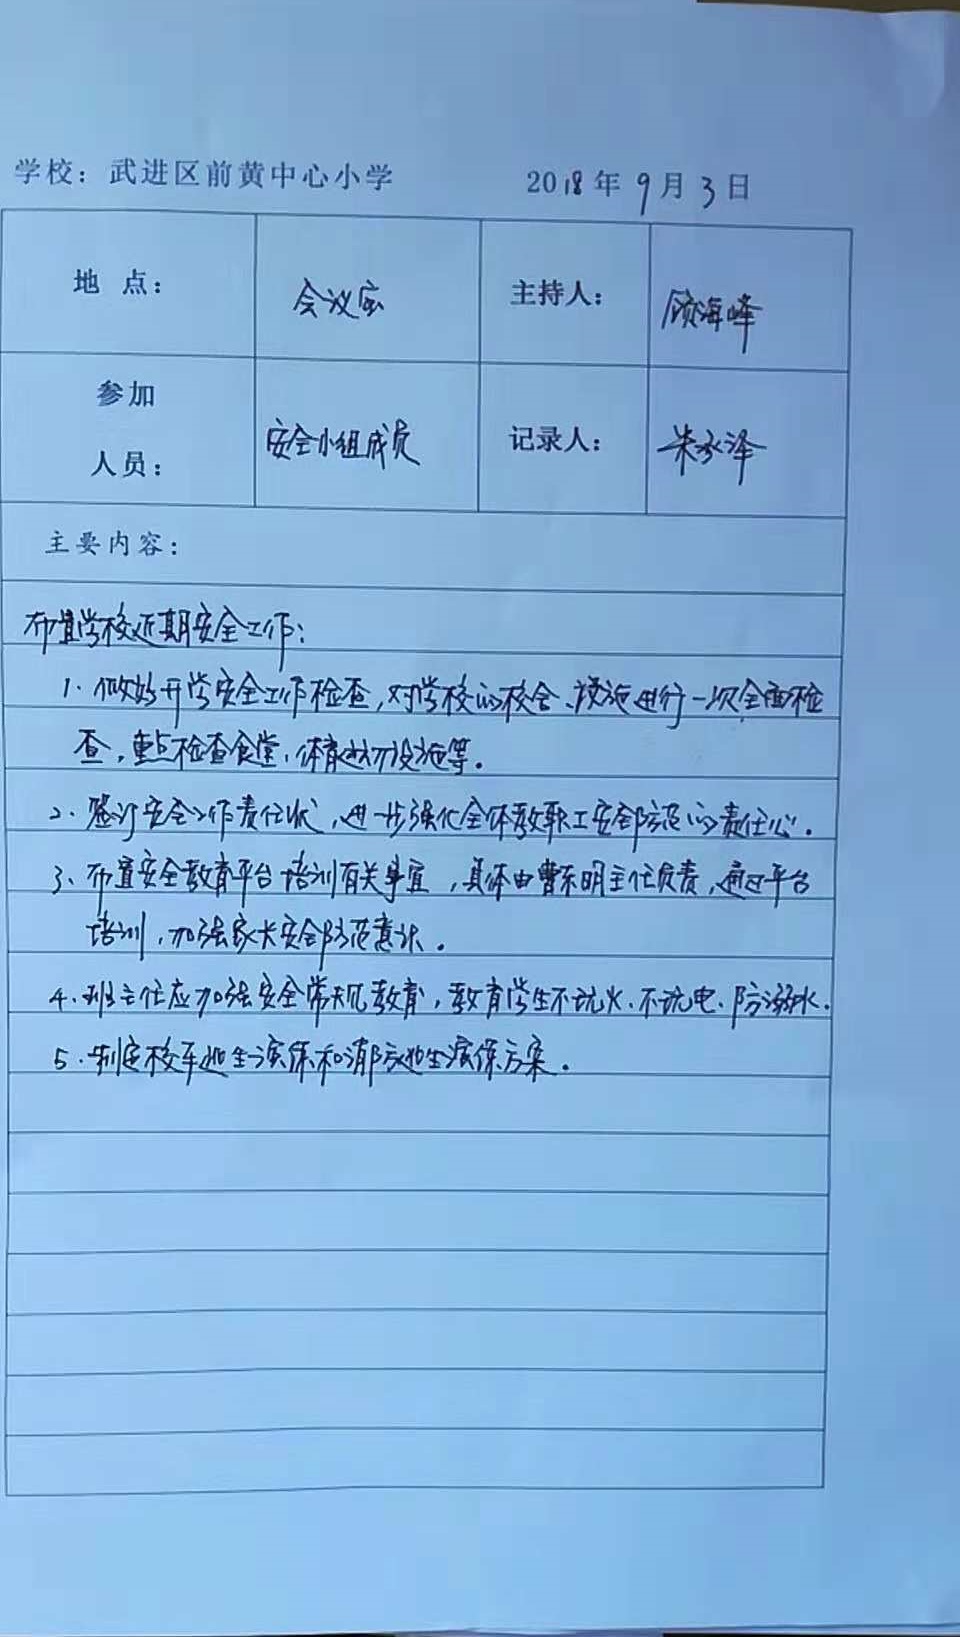 学校：武进区前黄中心小学 2018年9月3日
地 点： 会议室 主持人： 顾海峰
参加人员： 安全小组成员 记录人： 朱永泽
主要内容：
布置学校近期安全工作：
1. 做好开学安全工作检查，对学校的校舍、设施进行一次全面检
查，重点检查食堂，体育场所设施等。
2. 签订安全工作责任状，进一步强化全体教职工安全防范的责任心。
3、布置安全教育平台培训有关事宜，具体由曹东明主任负责，通过平台
培训，加强家长安全防范意识。
4. 班主任应加强安全常规教育，教育学生不玩火、不玩电、防溺水。
5. 制定校车逃生演练和消防逃生演练方案。